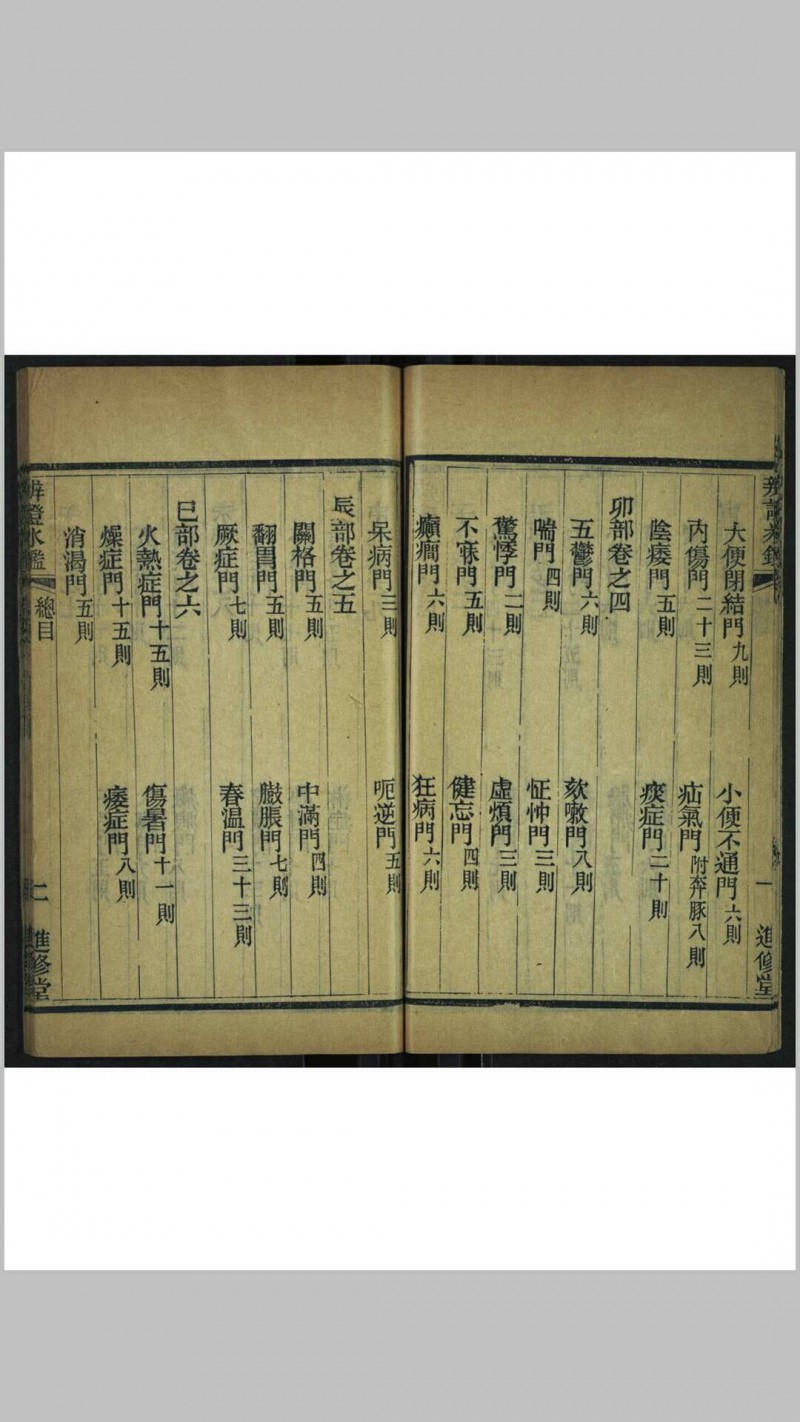 大便閉結門九則　小便不通門六則
內傷門二十三則　疝氣門附奔豚八則
陰痿門五則　痰症門二十則
卯部卷之四
五鬱門六則　欬嗽門八則
喘門四則　怔忡門三則
驚悸門二則　虛煩門三則
不寐門五則　健忘門四則
癲癇門六則　狂病門六則
一　進修堂
呆病門三則　呃逆門五則
辰部卷之五
關格門五則　中滿門四則
翻胃門五則　臌脹門七則
厥症門七則　春温門三十三則
巳部卷之六
火熱症門十五則　傷暑門十一則
燥症門十五則　痿症門八則
消渴門五則
辨證冰鑑　總目　二　進修堂